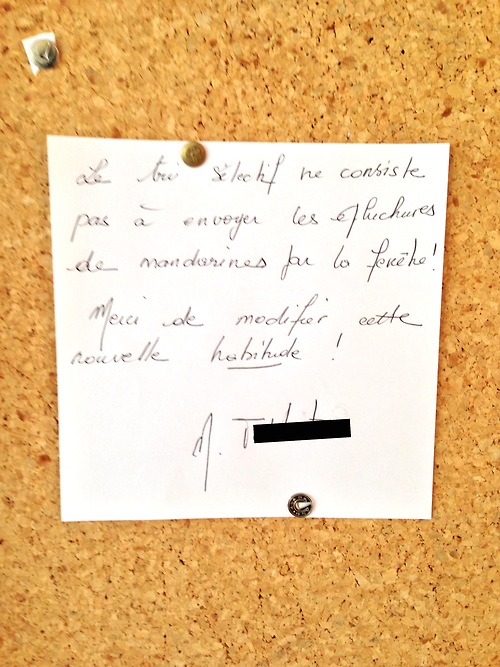 Le tri sélectif ne consiste
pas à envoyer les épluchures
de mandarines par la fenêtre!
Merci de modifier cette
nouvelle habitude !
M. T